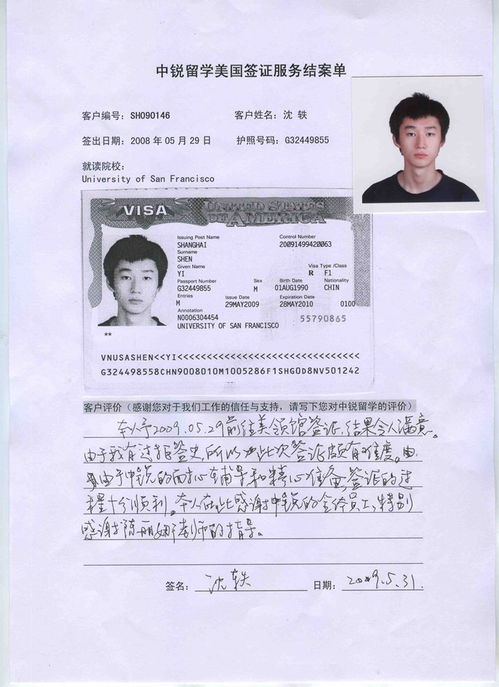 中锐留学美国签证服务结案单
客户编号: SH090146 客户姓名: 沈 轶
签出日期: 2008 年 05 月 29 日 护照号码: G32449855
就读院校:
University of San Francisco
VISA UNITED STATES OF AMERICA
Issuing Post Name Control Number
SHANGHAI 20091499420063
Surname
SHEN
Given Name Visa Type /Class
YI R F1
Passport Number Sex Birth Date Nationality
G32449855 M 01AUG1990 CHIN
Entries Issue Date Expiration Date
M 29MAY2009 28MAY2010 0100
Annotation
N0006304454 55790865
UNIVERSITY OF SAN FRANCISCO
**
VNUSASHEN<<YI<<<<<<<<<<<<<<<<<<<<<<<
G324498558CHN9008010M1005286F1SHGOD8NV501242
客户评价 (感谢您对于我们工作的信任与支持, 请写下您对中锐留学的评价)
本人于2009.05.29前往美领馆签证,结果令人满意。
由于我有过拒签史,所以此次签证颇有难度。
由于中锐的耐心辅导和精心准备签证的过
程十分顺利。本人在此感谢中锐的全体员工,特别
感谢陈丽娜老师的指导。
签名: 沈轶 日期: 2009.5.31.